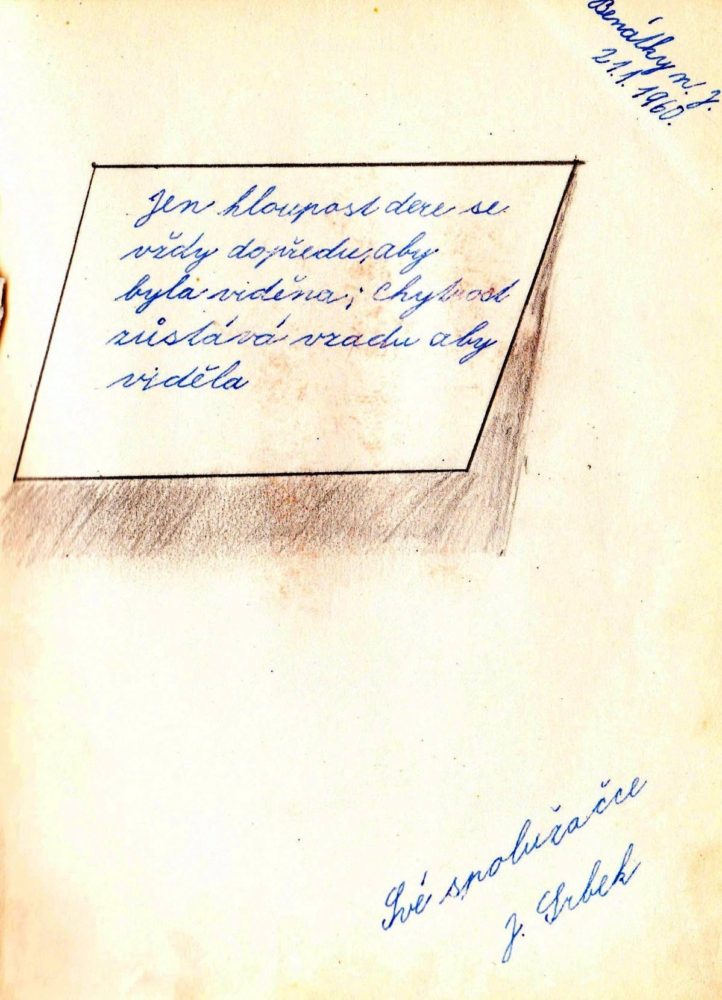 Benátky n. J.
21.1.1960.
Jen hloupost dere se
vždy dopředu, aby
byla viděna; chytrost
zůstává vzadu aby
viděla
Své spolužačce
J. Srbek